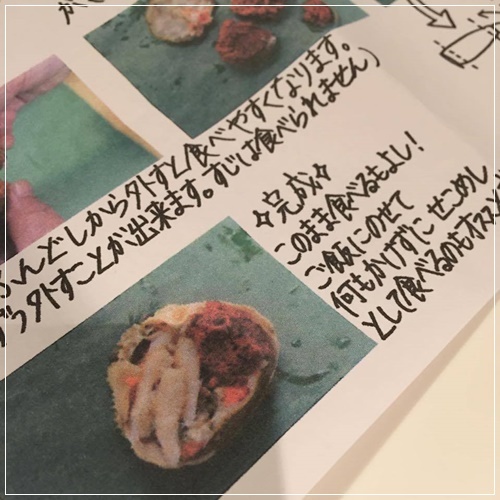 ふんどしから外すと食べやすくなります。
ずつ外すことが出来ます。すじは食べられません)
完成
このまま食べるもよし!
ご飯にのせて
何もかけずにせこめし
として食べるのもオススメ